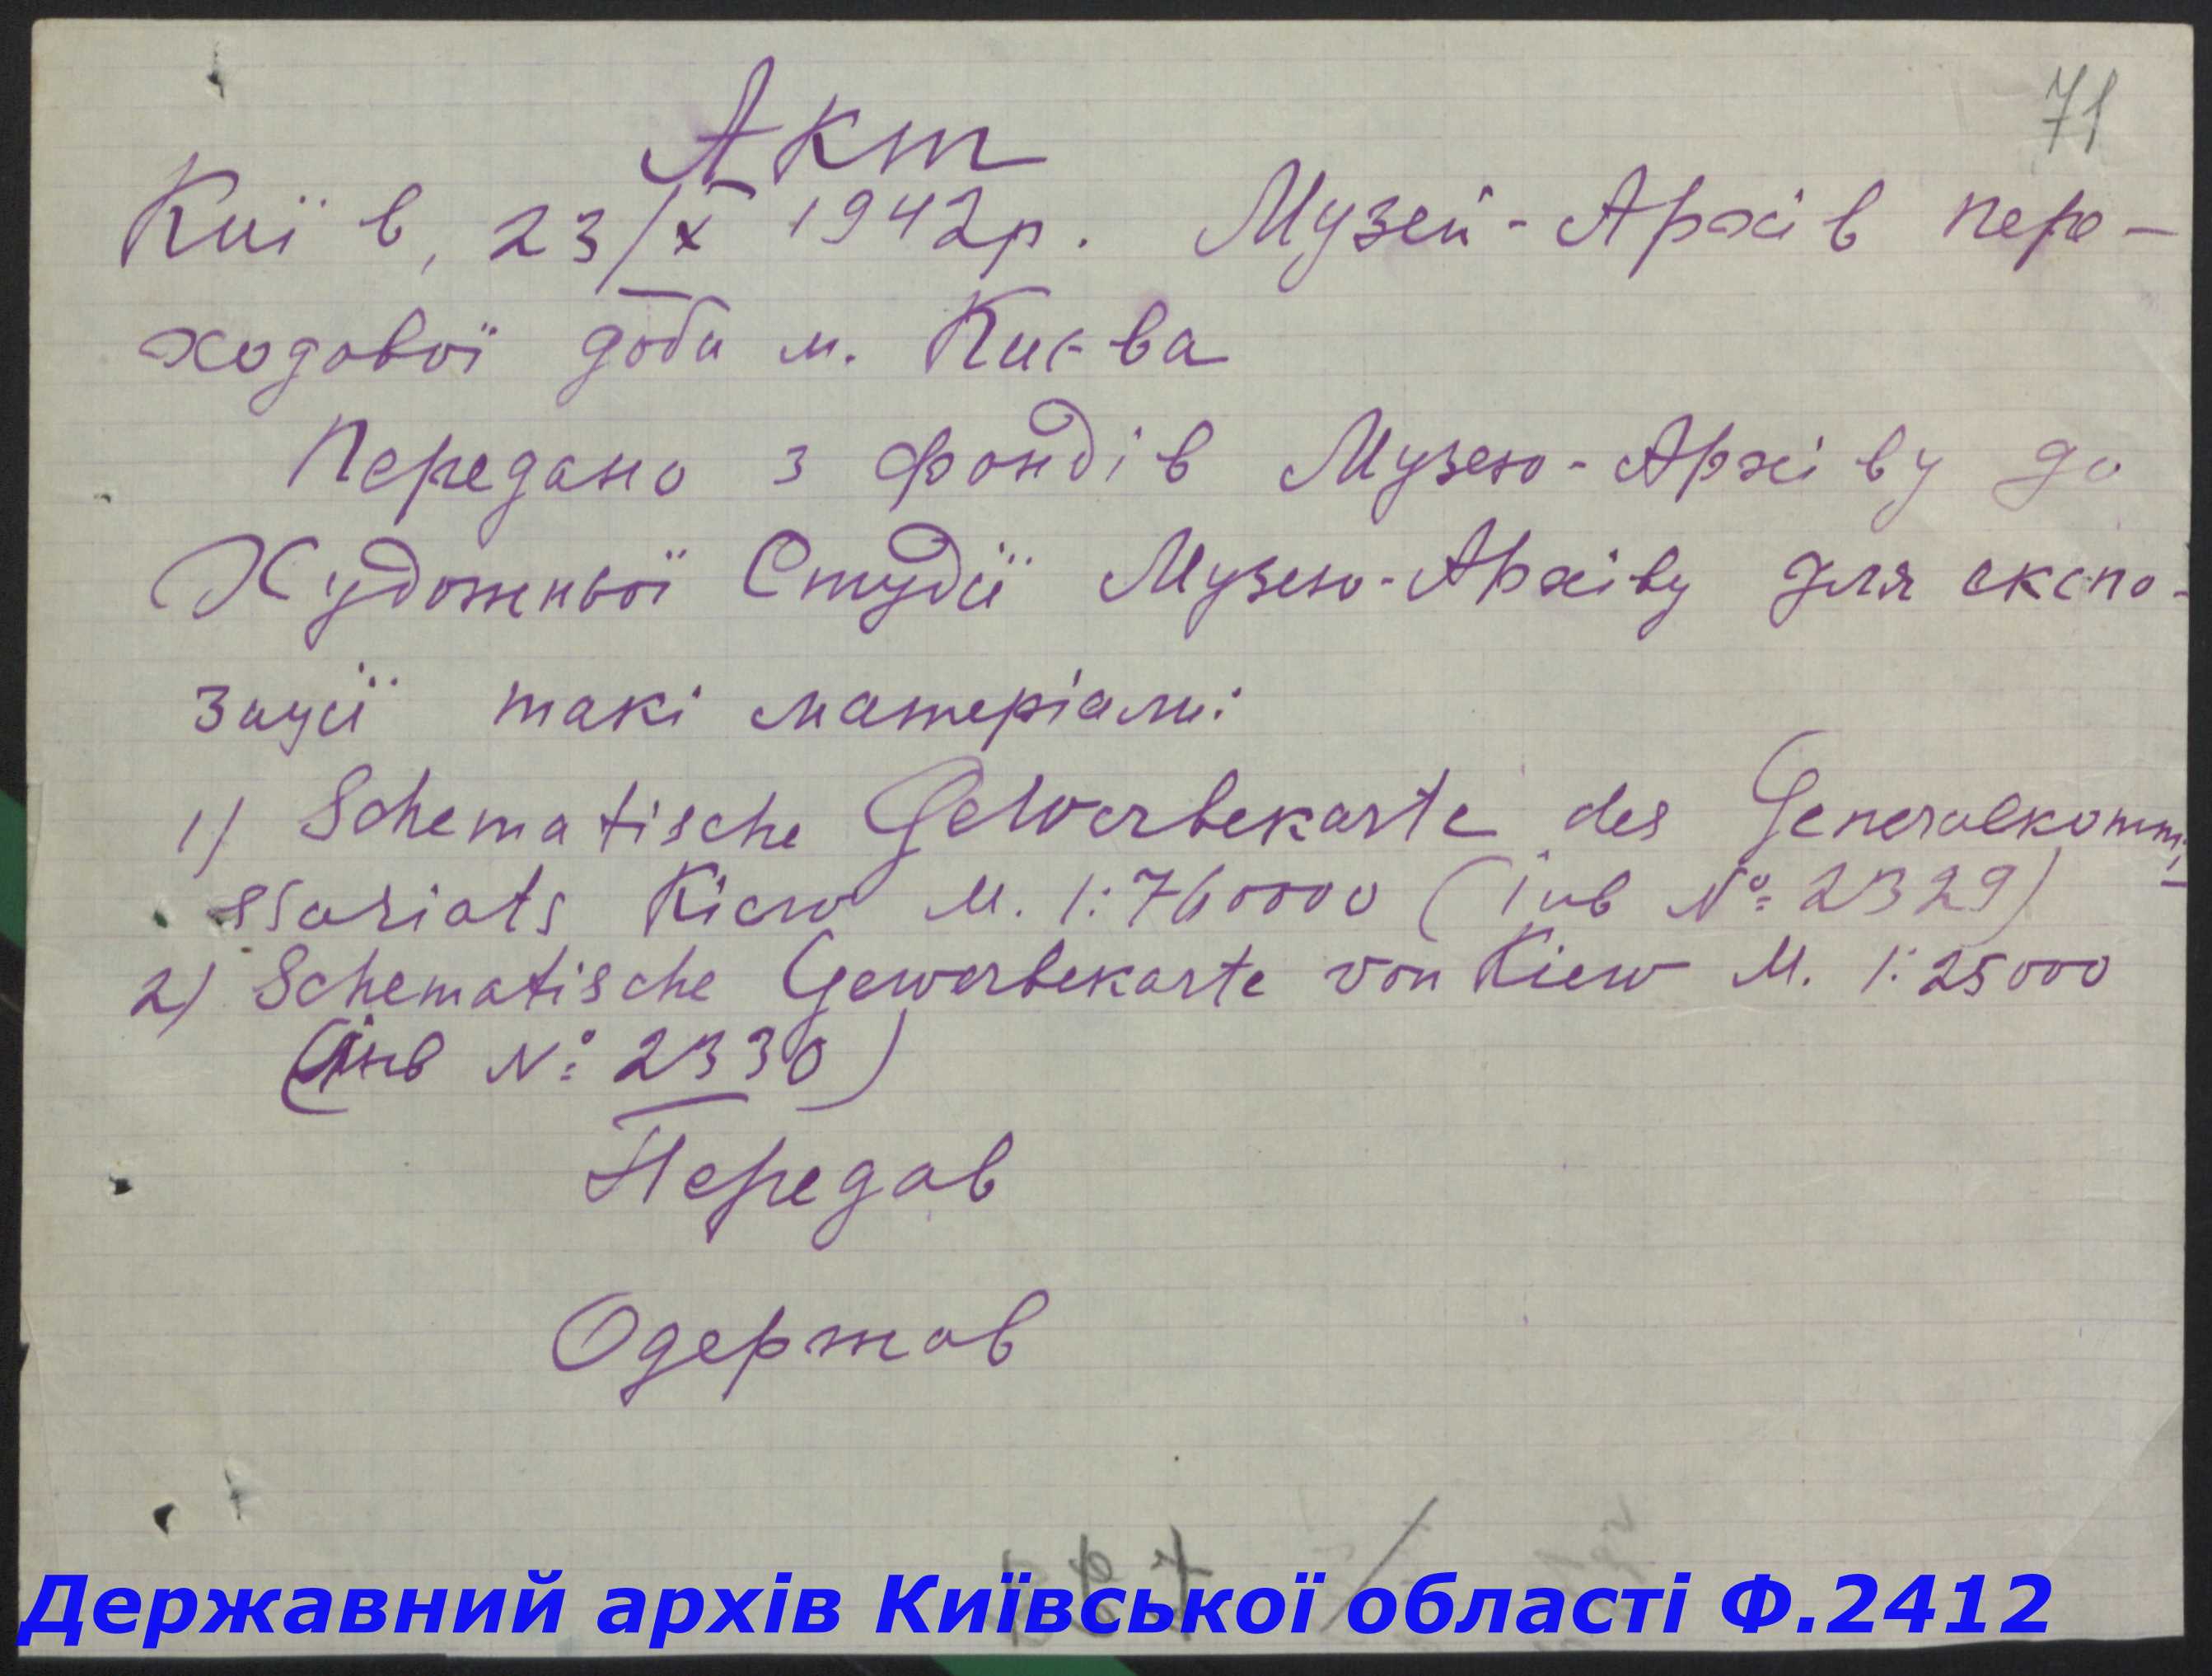 71
Акт
Київ, 23/X 1942р. Музей-Архів пере-
ходової доби м. Києва
Передано з фондів Музею-Архіву до
Художньої Студії Музею-Архіву для експо-
зиції такі матеріали:
1) Schematische Gewerbekarte des Generalkommi-
ssariats Kiew M. 1:760000 (інв № 2329)
2) Schematische Gewerbekarte von Kiew M. 1:25000
(інв № 2330)
Передав
Одержав
Державний архів Київської області Ф.2412